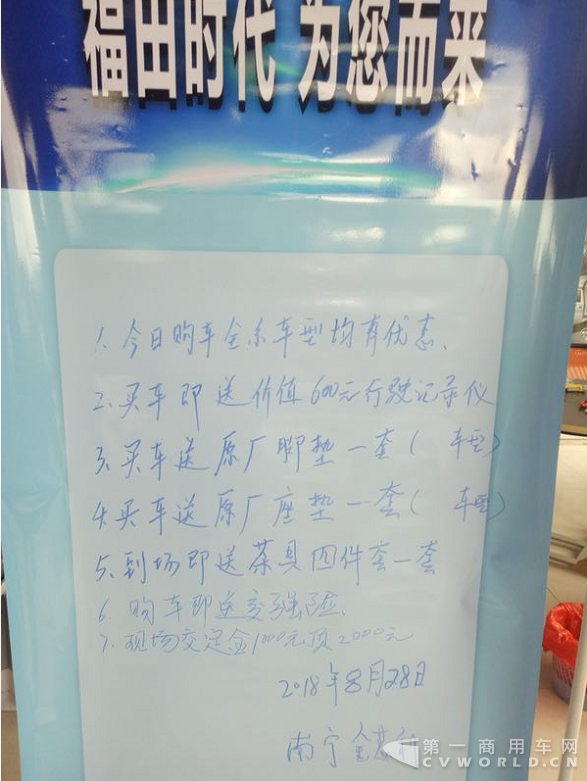 福田时代 为您而来
1.今日购车全系车型均有优惠.
2.买车即送价值600元行驶记录仪
3.买车送原厂脚垫一套( 车型)
4.买车送原厂座垫一套( 车型)
5.到场即送茶具四件套一套
6.购车即送交强险.
7.现场交定金1000元顶2000元
2018年8月28日
南宁金
第一商用车网
CVWORLD.CN